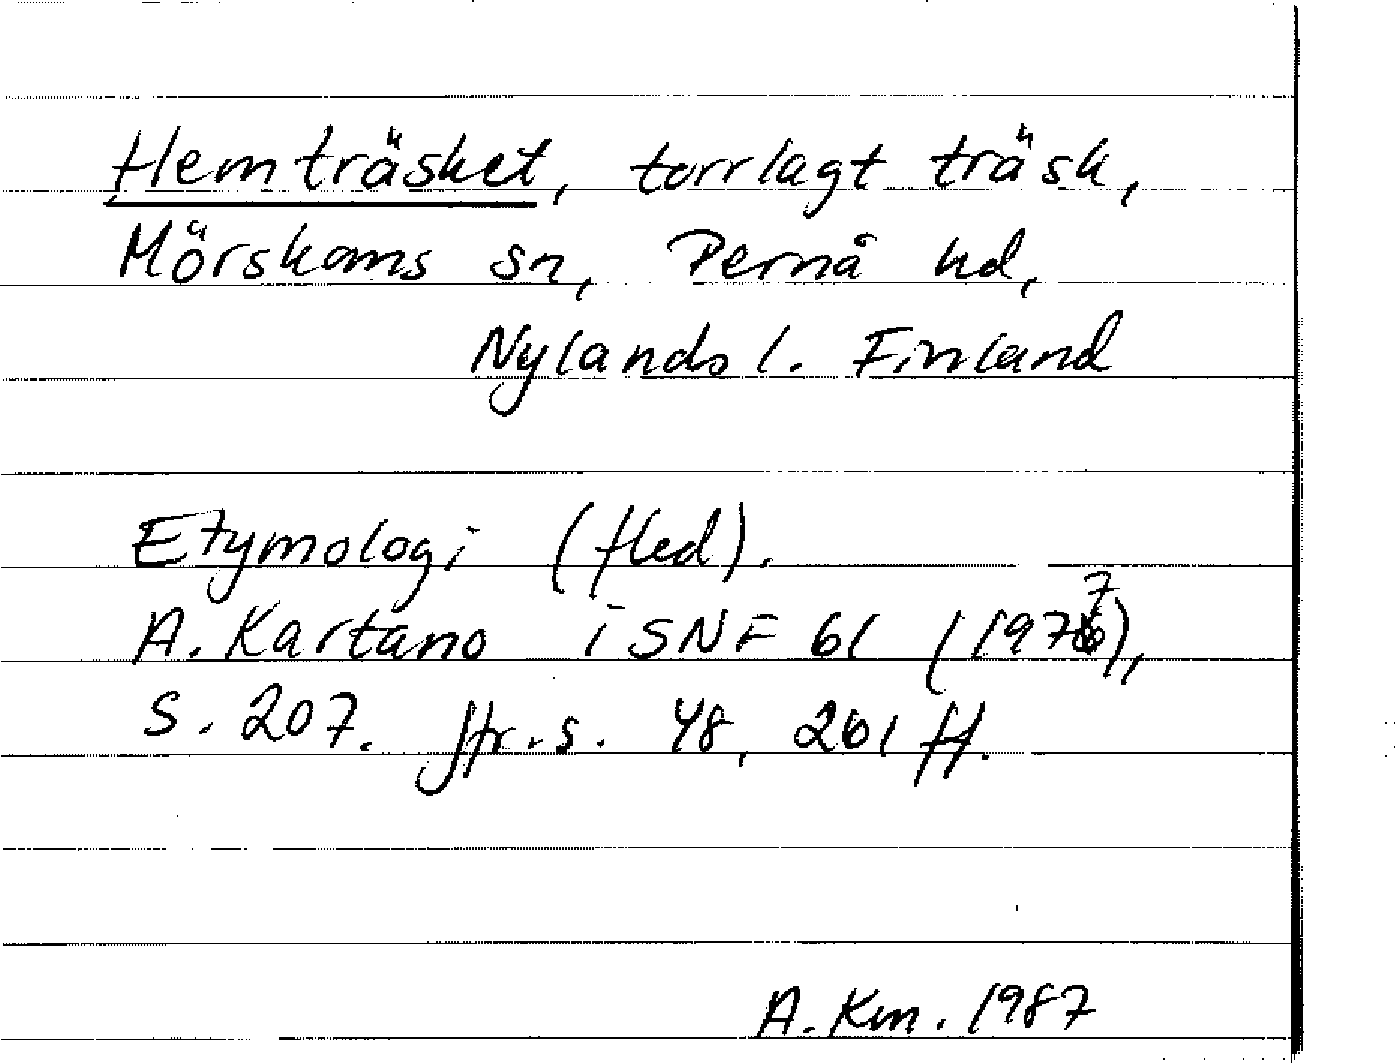 Hemträsket, torrlagt träsk,
Mörskoms sn, Pernå hd,
Nylands l. Finland
Etymologi (fled).
A. Kartano i SNF 61 (1977),
s. 207. Jfr s. 48, 261 ff.
A. Km. 1987